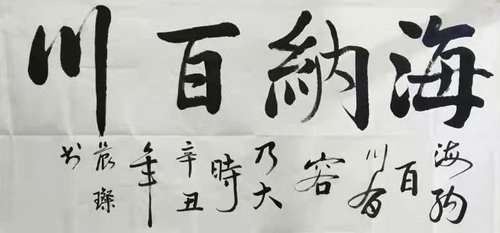 海納百川
海納
百
川有
容
乃大
時
辛丑
年
璨
书